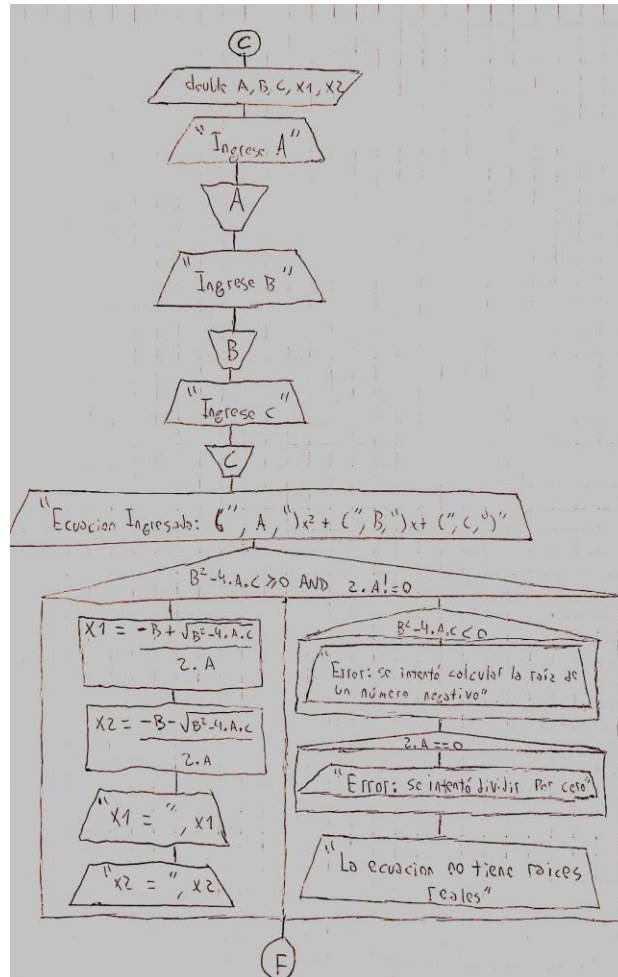 C
double A, B, C, X1, X2
"Ingrese A"
A
"Ingrese B"
B
"Ingrese C"
C
"Ecuacion Ingresada: (", A, ")x² + (", B, ")x + (", C, ")"
B²-4.A.C ≥0 AND 2.A!=0
X1 = -B + √B²-4.A.C
2.A
X2 = -B - √B²-4.A.C
2.A
"X1 = ", X1
"X2 = ", X2
B²-4.A.C < 0
"Error: se intentó calcular la raíz de
un número negativo"
2.A ==0
"Error: se intentó dividir por cero"
"La ecuacion no tiene raices
reales"
F